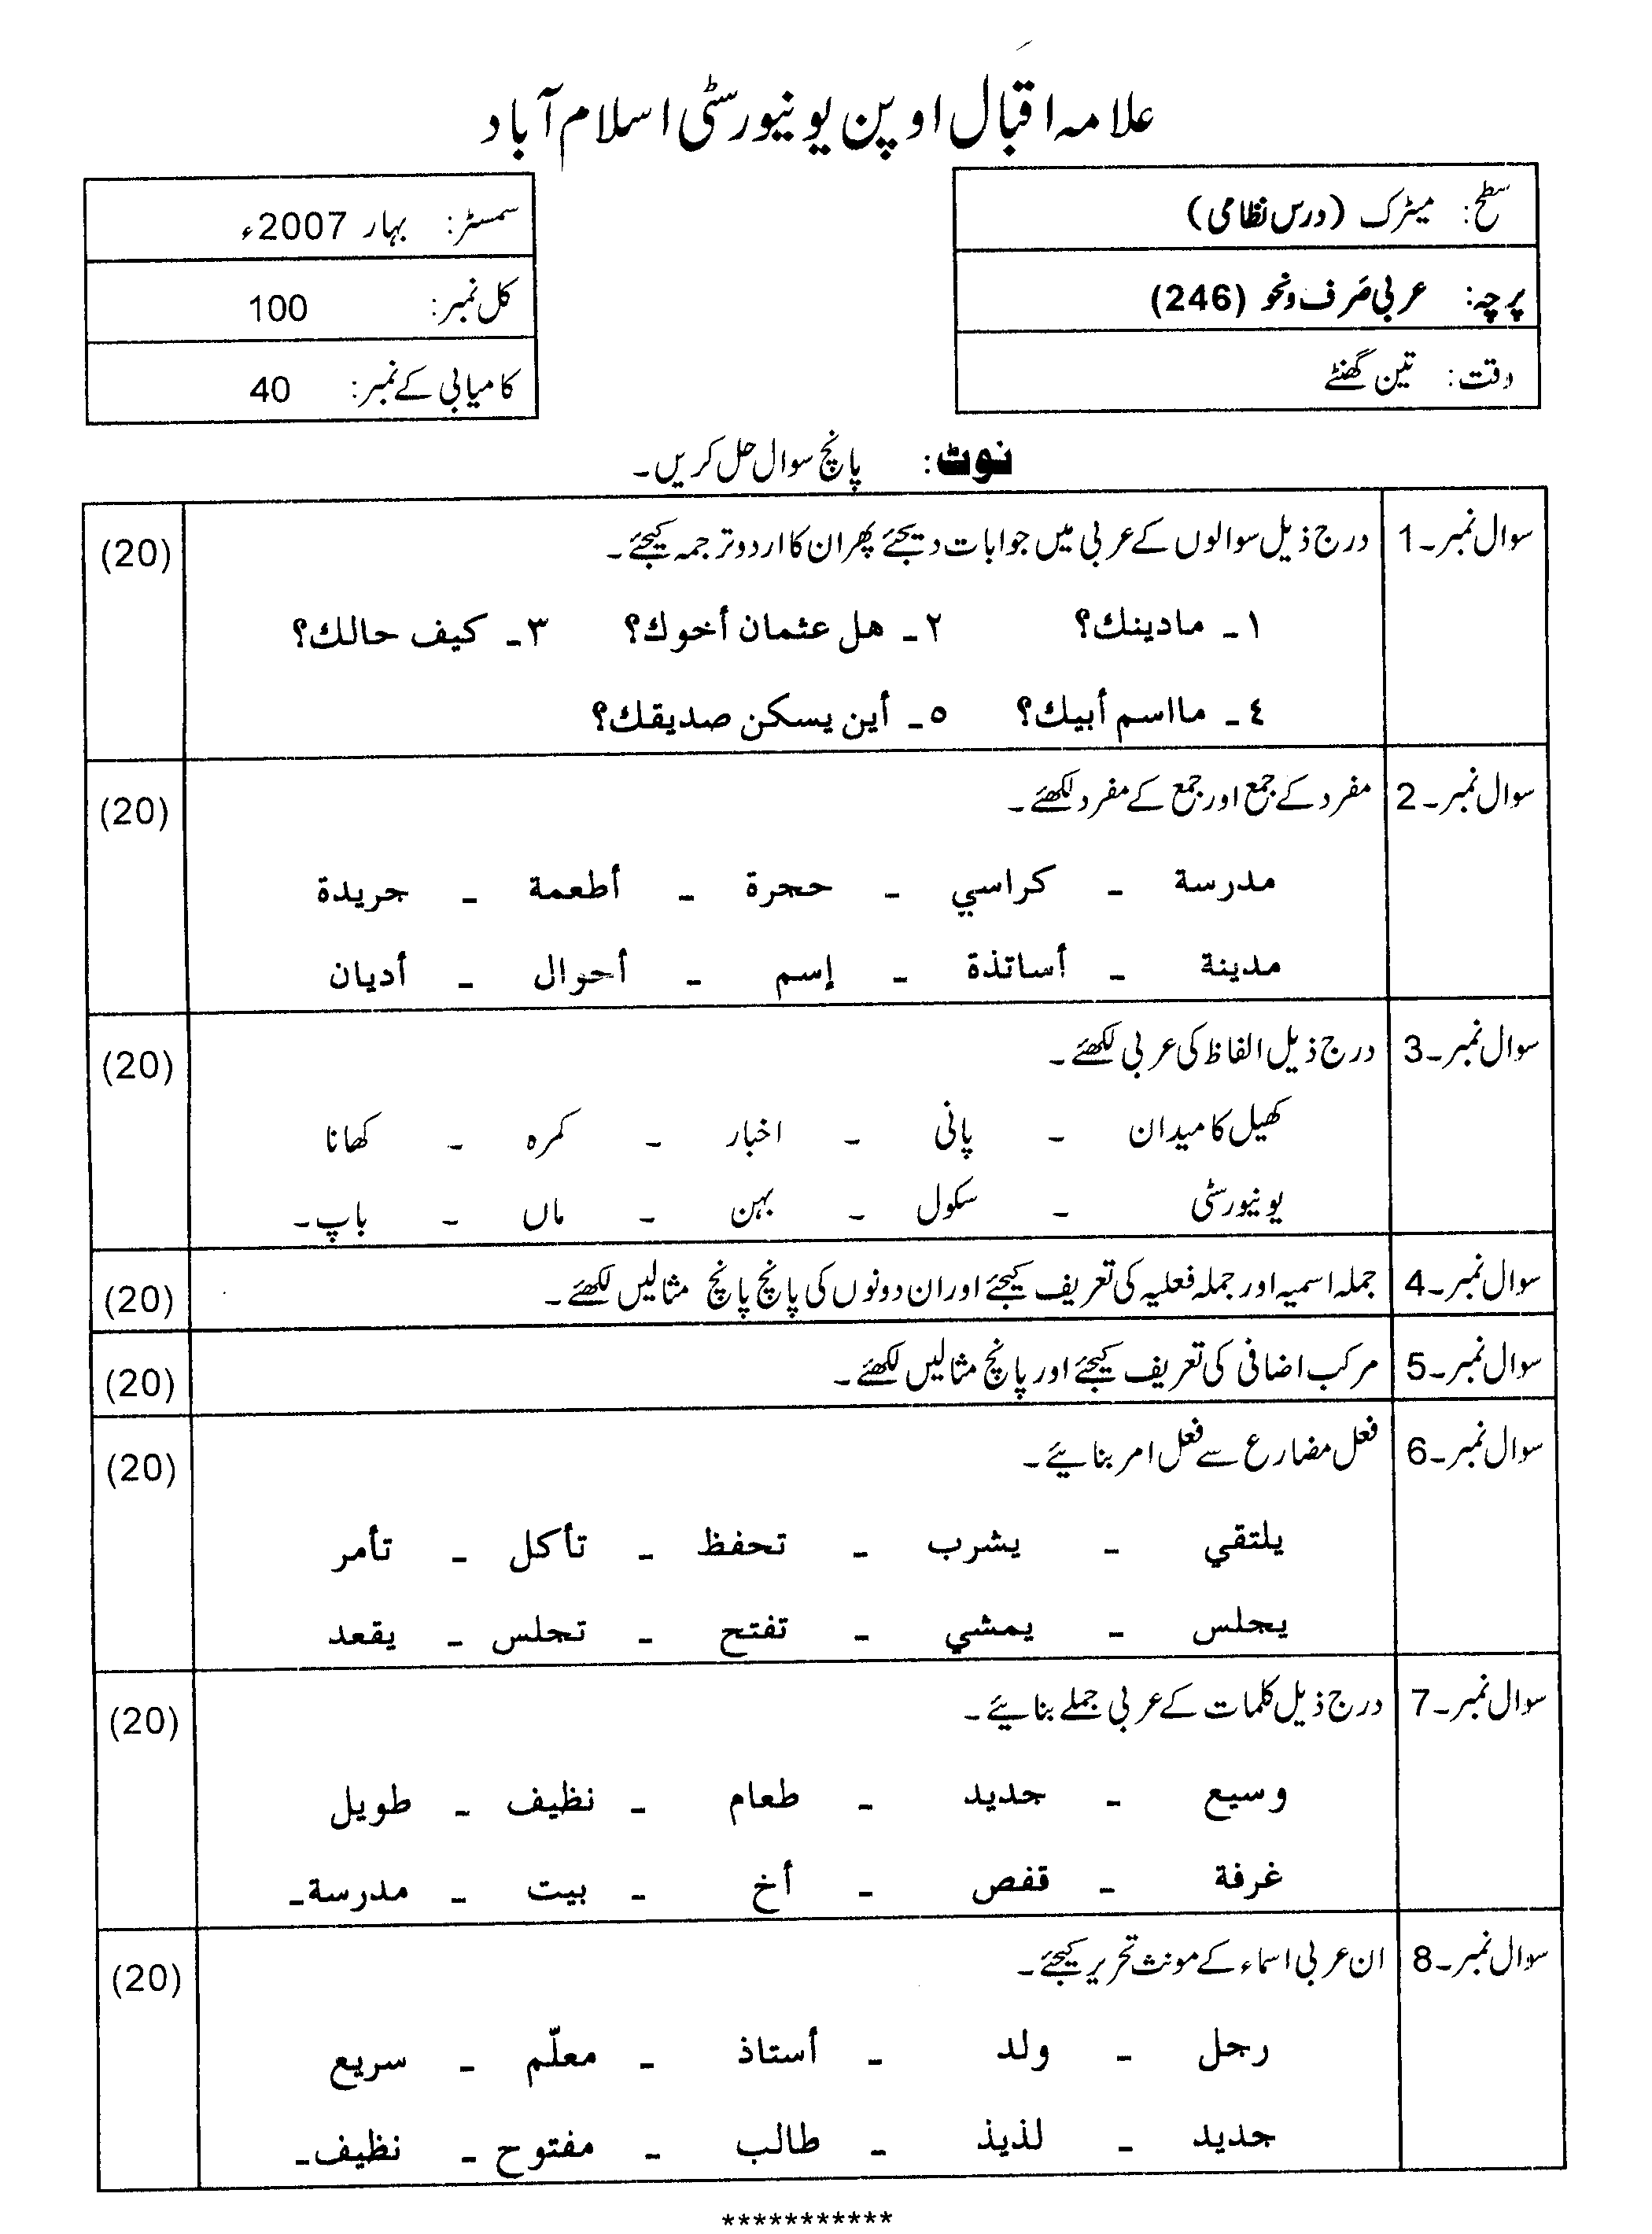 علامہ اقبال اوپن یونیورسٹی اسلام آباد
سطح: میٹرک (درس نظامی)
پرچہ: عربی صَرف ونحو (246)
وقت: تین گھنٹے
سمسٹر: بہار 2007ء
کل نمبر: 100
کامیابی کے نمبر: 40
نوٹ: پانچ سوال حل کریں۔
سوال نمبر۔1 درج ذیل سوالوں کے عربی میں جوابات دیجئے پھر ان کا اردو ترجمہ کیجئے۔ (20)
١ـ مادينك؟ ٢ـ هل عثمان أخوك؟ ٣ـ كيف حالك؟
٤ـ مااسم أبيك؟ ٥ـ أين يسكن صديقك؟
سوال نمبر۔2 مفرد کے جمع اور جمع کے مفرد لکھئے۔ (20)
مدرسة ـ كراسي ـ حجرة ـ أطعمة ـ جريدة
مدينة ـ أساتذة ـ إسم ـ أحوال ـ أديان
سوال نمبر۔3 درج ذیل الفاظ کی عربی لکھئے۔ (20)
کھیل کا میدان ۔ پانی ۔ اخبار ۔ کمرہ ۔ کھانا
یونیورسٹی ۔ سکول ۔ بہن ۔ ماں ۔ باپ۔
سوال نمبر۔4 جملہ اسمیہ اور جملہ فعلیہ کی تعریف کیجئے اور ان دونوں کی پانچ پانچ مثالیں لکھئے۔ (20)
سوال نمبر۔5 مرکب اضافی کی تعریف کیجئے اور پانچ مثالیں لکھئے۔ (20)
سوال نمبر۔6 فعل مضارع سے فعل امر بنائیے۔ (20)
يلتقي ـ يشرب ـ تحفظ ـ تأكل ـ تأمر
يجلس ـ يمشي ـ تفتح ـ تجلس ـ يقعد
سوال نمبر۔7 درج ذیل کلمات کے عربی جملے بنائیے۔ (20)
وسيع ـ جديد ـ طعام ـ نظيف ـ طويل
غرفة ـ قفص ـ أخ ـ بيت ـ مدرسة۔
سوال نمبر۔8 ان عربی اسماء کے مونث تحریر کیجئے۔ (20)
رجل ـ ولد ـ أستاذ ـ معلّم ـ سريع
جديد ـ لذيذ ـ طالب ـ مفتوح ـ نظيف۔
***********